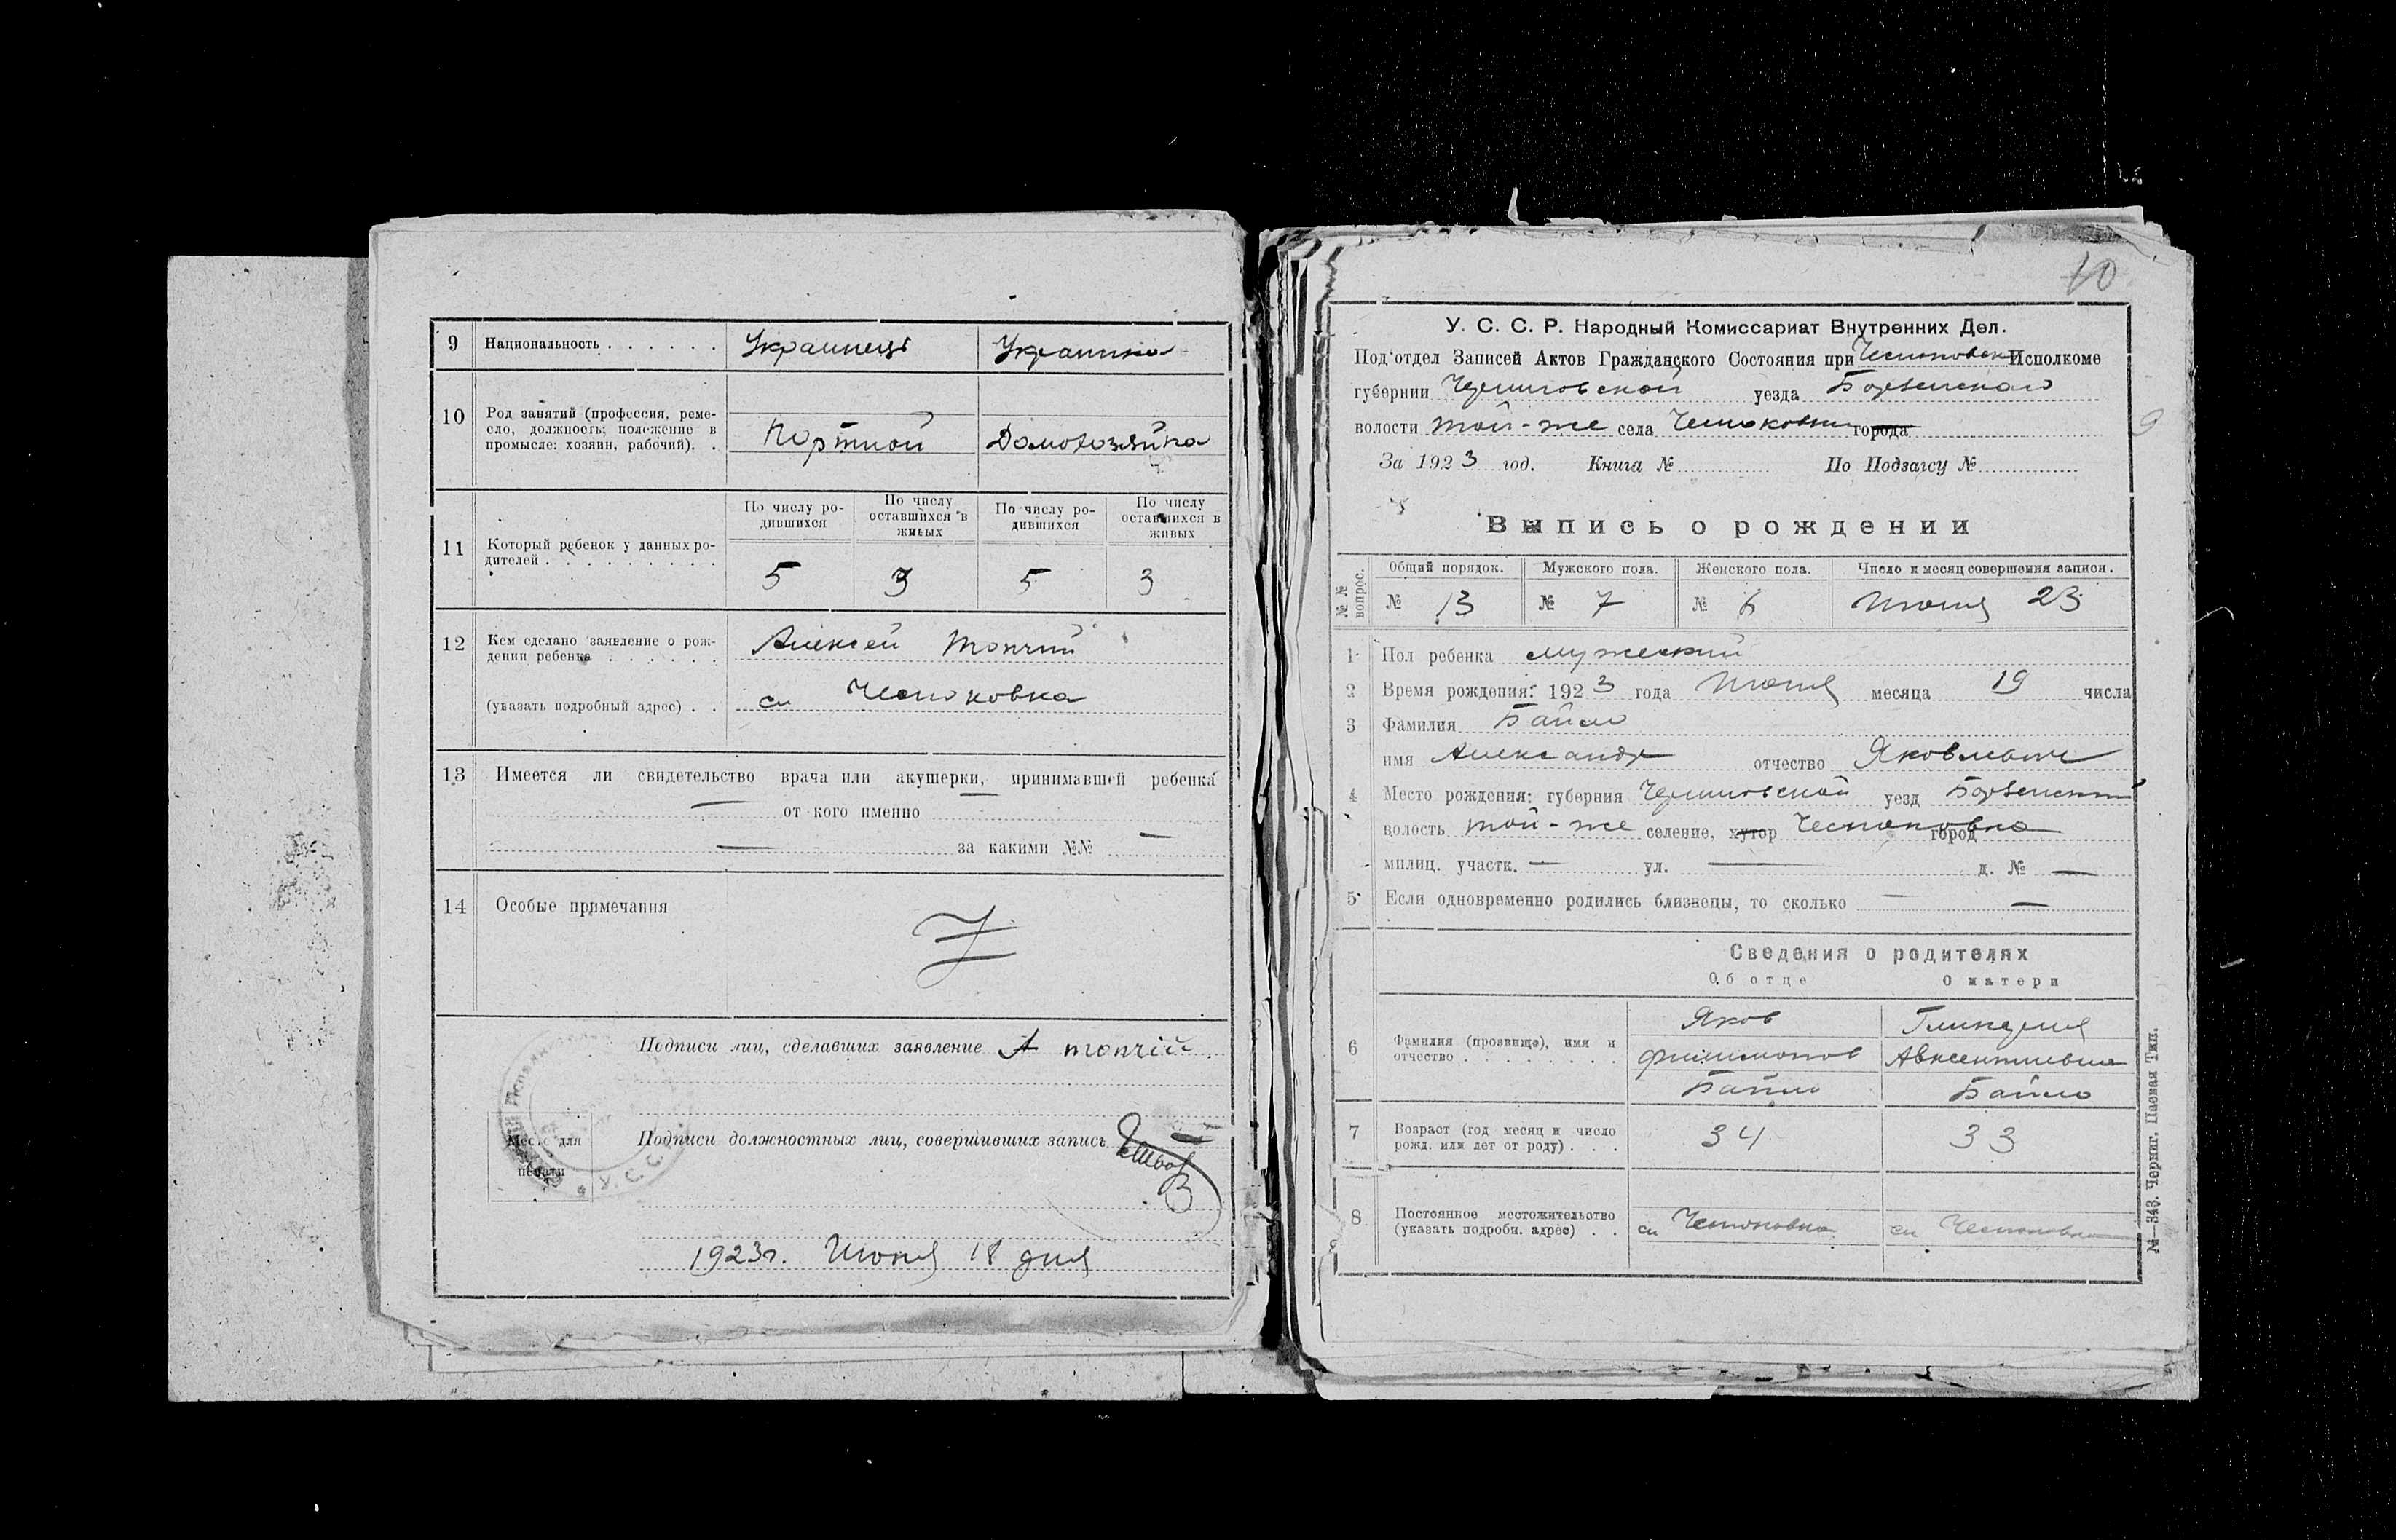 9 Национальность . . . . . . Украинець Украинка
10 Род занятий (профессия, реме-
сло, должность; положение в
промысле: хозяин, рабочий). . Портной Домохозяйка
11 Который ребенок у данных ро-
дителей . . . . . . . . .
По числу ро-
дившихся
По числу
оставшихся в
живых
По числу ро-
дившихся
По числу
оставшихся в
живых
5 3 5 3
12 Кем сделано заявление о рож-
дении ребенка . . . . . . Алексей Топчий
(указать подробный адрес) . . сл Чесноковка
13 Имеется ли свидетельство врача или акушерки, принимавшей ребенка
— от кого именно —
— за какими №№ —
14 Особые примечания
Подписи лиц, сделавших заявление А топчій
Место для
печати
У. С. С.
Подписи должностных лиц, совершивших запись
1923г. Июня 18 дня
10
У. С. С. Р. Народный Комиссариат Внутренних Дел.
Под'отдел Записей Актов Гражданского Состояния при Исполкоме
губернии Черниговской уезда Борзенского
волости той-же села Чесноковки города
За 1923 год. Книга № По Подзагсу №
9
Выпись о рождении
№ №
вопрос.
Общий порядок. Мужского пола. Женского пола. Число и месяц совершения записи.
№ 13 № 7 № 6 Июня 23
1 Пол ребенка мужеский
2 Время рождения: 1923 года Июня месяца 19 числа
3 Фамилия Байло
имя Александр отчество Яковлевич
4 Место рождения: губерния Черниговской уезд Борзенский
волость той-же селение, хутор Чесноковка город
милиц. участк. — ул. — д. № —
5 Если одновременно родились близнецы, то сколько — —
Сведения о родителях
Об отце О матери
6 Фамилия (прозвище), имя и
отчество . . . . . . .
Яков Гликерия
Филимонов Авксентиевна
Байло Байло
7 Возраст (год месяц и число
рожд. или лет от роду) . . . 34 33
8 Постоянное местожительство
(указать подробн. адрес) . . сл Чесноковка сл Чесноковка
№—343. Черниг. Паевая Тип.